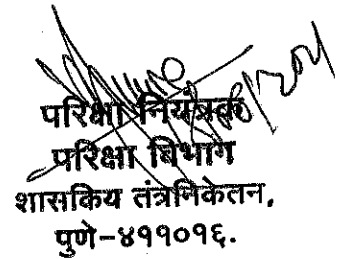 परिक्षा नियंत्रक
परिक्षा विभाग
शासकिय तंत्रनिकेतन,
पुणे-४११०१६.